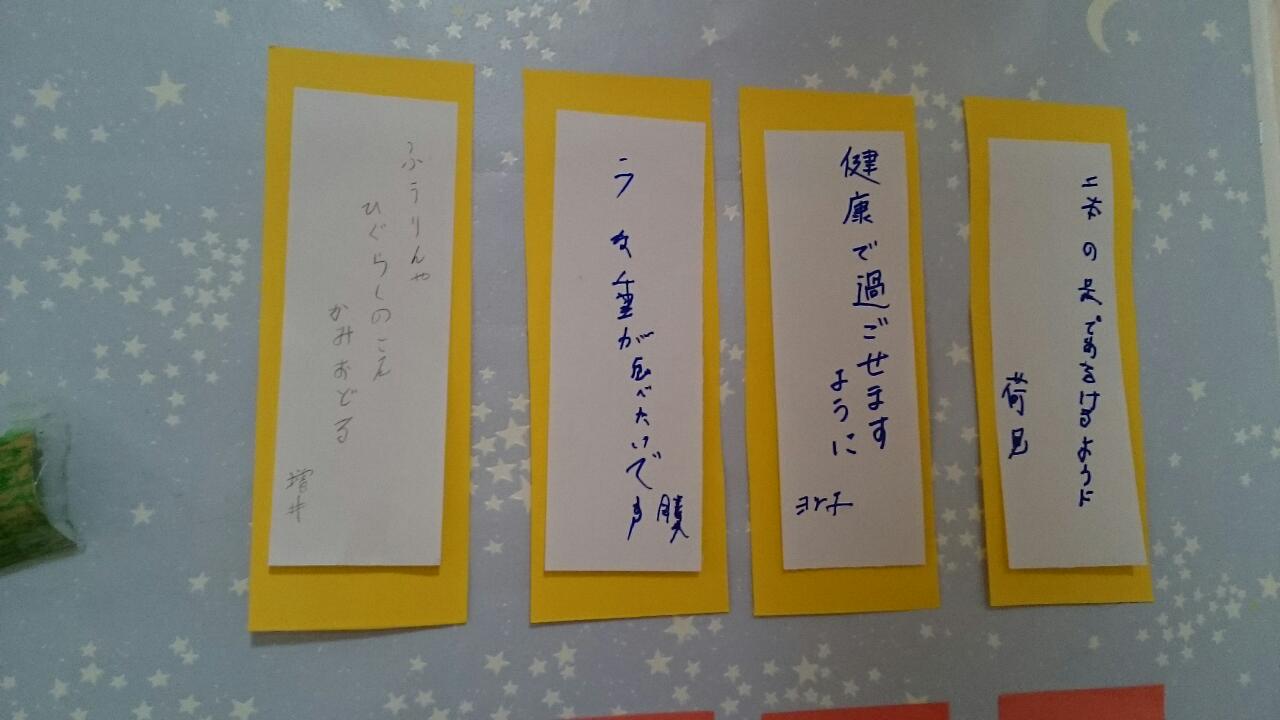 二本の足であるけるようにように
荷見
健康で過ごせます
ように
ヨシ子
うな重が食べたいで
す 勝
ふうりんや
ひぐらしのこえ
かみおどる
増井